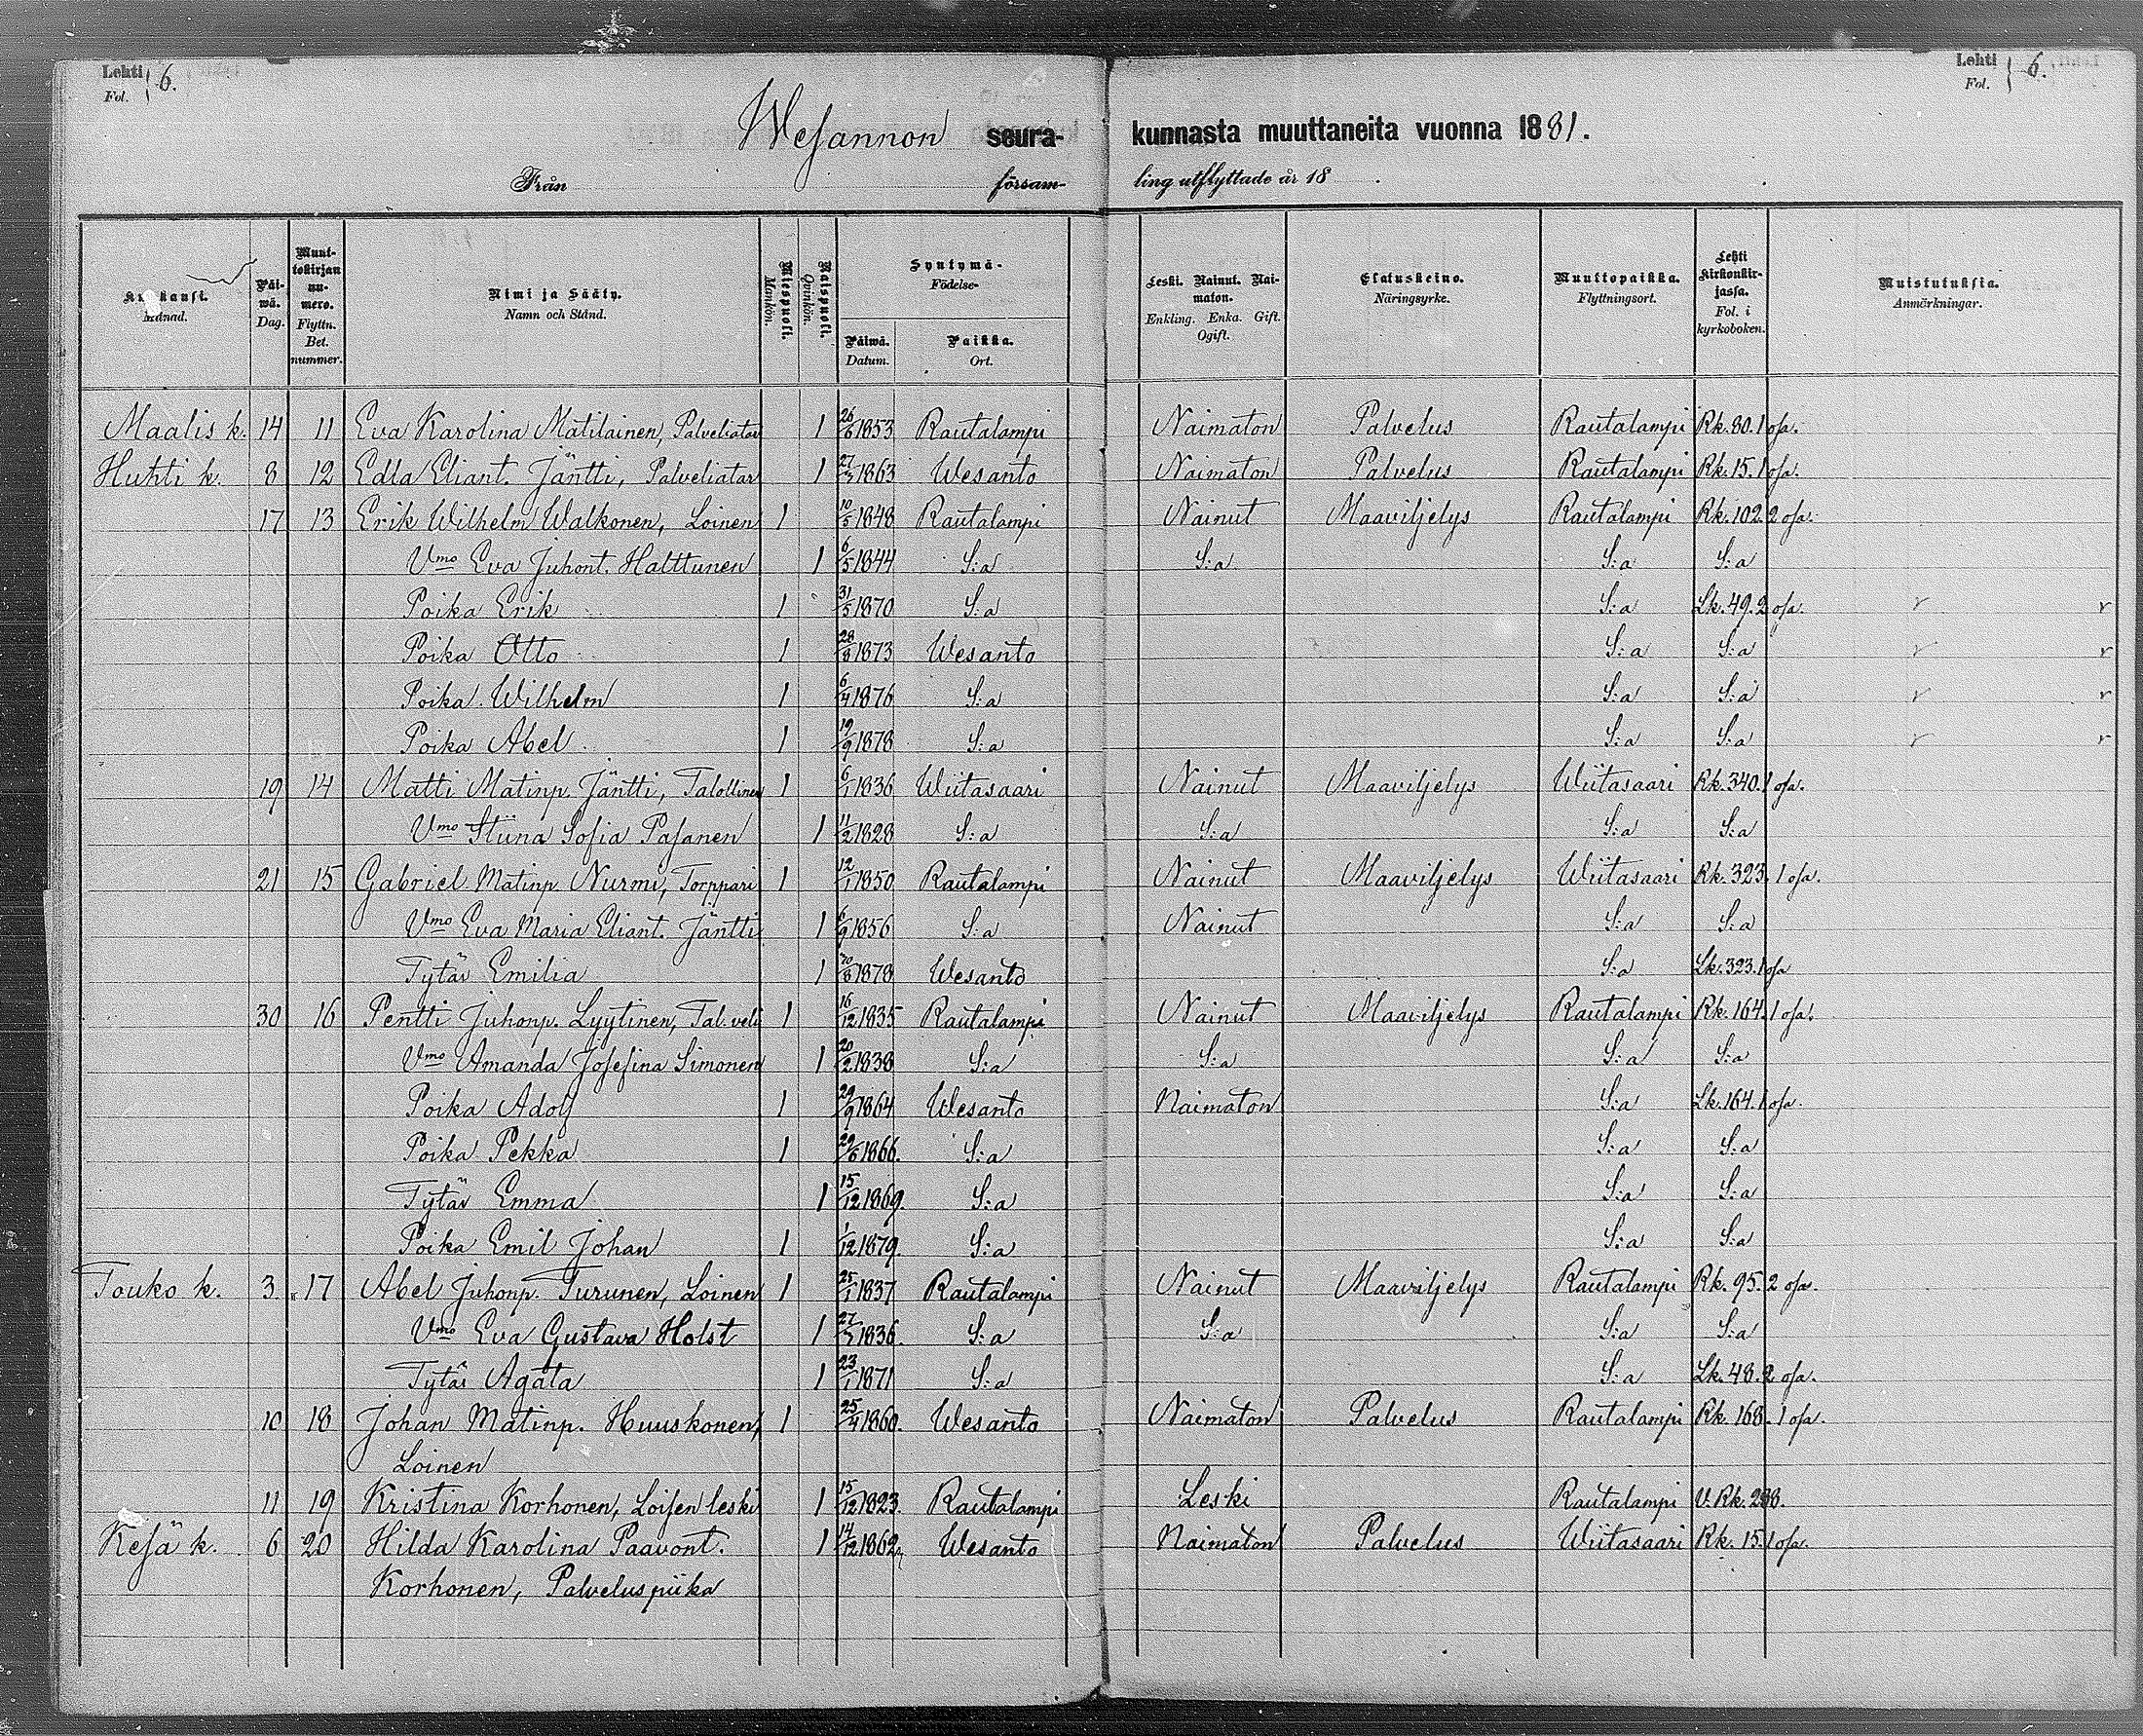 Lehti } 6.
Fol.
Lehti } 6.
Fol.
Wesannon seura- kunnasta muuttaneita vuonna 1881.
Från försam- ling utflyttade år 18 .
Kuukausi. Månad.
Päi-wä. Dag.
Muut-tokirjan nu-mero. Flyttn. Bet. nummer.
Nimi ja Sääty. Namn och Stånd.
Miespuoli. Mankön.
Naispuoli. Qvinkön.
Syntymä- Födelse-
Päiwä. Datum.
Paikka. Ort.
Leski. Nainut. Nai-maton. Enkling. Enka. Gift. Ogift.
Elatuskeino. Näringsyrke.
Muuttopaikka. Flyttningsort.
Lehti kirkonkir-jassa. Fol. i kyrkoboken.
Muistutuksia. Anmärkningar.
Maalis k. 14 11 Eva Karolina Matilainen, Palveliatar 1 26/6 1853 Rautalampi Naimaton Palvelus Rautalampi Rk. 80. 1 osa.
Huhti k. 8 12 Edla Eliant. Jäntti, Palveliatar 1 27/3 1863 Wesanto Naimaton Palvelus Rautalampi Rk. 15. 1 osa.
17 13 Erik Wilhelm Walkonen, Loinen 1 10/5 1848 Rautalampi Nainut Maaviljelys Rautalampi Rk. 102. 2 osa.
Vmo Eva Juhont. Halttunen 1 6/5 1844 S:a S:a S:a S:a
Poika Erik 1 31/5 1870 S:a S:a Lk. 49. 2 osa. r r
Poika Otto 1 28/8 1873 Wesanto S:a S:a r r
Poika Wilhelm 1 6/4 1876 S:a S:a S:a r r
Poika Abel 1 19/9 1878 S:a S:a S:a r r
19 14 Matti Matinp. Jäntti, Talollinen 1 6/1 1836 Wiitasaari Nainut Maaviljelys Wiitasaari Rk. 340. 1 osa.
Vmo Stiina Sofia Pasanen 1 11/2 1828 S:a S:a S:a S:a
21 15 Gabriel Matinp. Nurmi, Torppari 1 12/1 1850 Rautalampi Nainut Maaviljelys Wiitasaari Rk. 323. 1 osa.
Vmo Eva Maria Eliant. Jäntti 1 6/9 1856 S:a Nainut S:a S:a
Tytär Emilia 1 1878 Wesanto S:a Lk. 323. 1 osa
30 16 Pentti Juhonp. Lyytinen, Tal. veli 1 16/12 1835 Rautalampi Nainut Maaviljelys Rautalampi Rk. 164. 1 osa.
Vmo Amanda Josefina Simonen 1 20/2 1838 S:a S:a S:a S:a
Poika Adolf 1 29/9 1864 Wesanto Naimaton S:a Lk. 164. 1 osa.
Poika Pekka 1 29/6 1866. S:a S:a S:a
Tytär Emma 1 15/12 1869. S:a S:a S:a
Poika Emil Johan 1 1/12 1879. S:a S:a S:a
Touko k. 3. 17 Abel Juhonp. Turunen, Loinen 1 25/1 1837 Rautalampi Nainut Maaviljelys Rautalampi Rk. 95. 2 osa.
Vmo Eva Gustava Holst 1 1836. S:a S:a S:a S:a
Tytär Agata 1 23/1 1871 S:a S:a Lk. 48. 2 osa.
10 18 Johan Matinp. Huuskonen, 1 25/4 1860. Wesanto Naimaton Palvelus Rautalampi Rk. 168. 1 osa.
Loinen
11 19 Kristina Korhonen, Loisen leski 1 15/12 1823. Rautalampi Leski Rautalampi V. Rk.
Kesä k. 6 20 Hilda Karolina Paavont. 1 14/12 1862 Wesanto Naimaton Palvelus Wiitasaari Rk. 15. 1 osa.
Korhonen, Palveluspiika